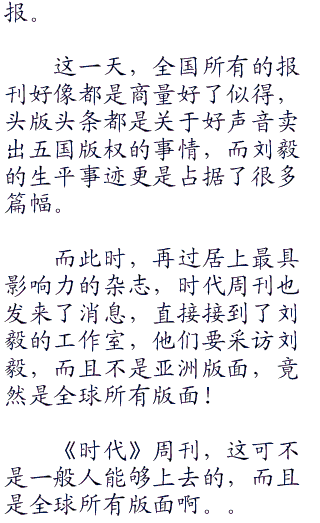 报。
这一天，全国所有的报
刊好像都是商量好了似得，
头版头条都是关于好声音卖
出五国版权的事情，而刘毅
的生平事迹更是占据了很多
篇幅。
而此时，再过居上最具
影响力的杂志，时代周刊也
发来了消息，直接接到了刘
毅的工作室，他们要采访刘
毅，而且不是亚洲版面，竟
然是全球所有版面！
《时代》周刊，这可不
是一般人能够上去的，而且
是全球所有版面啊。。